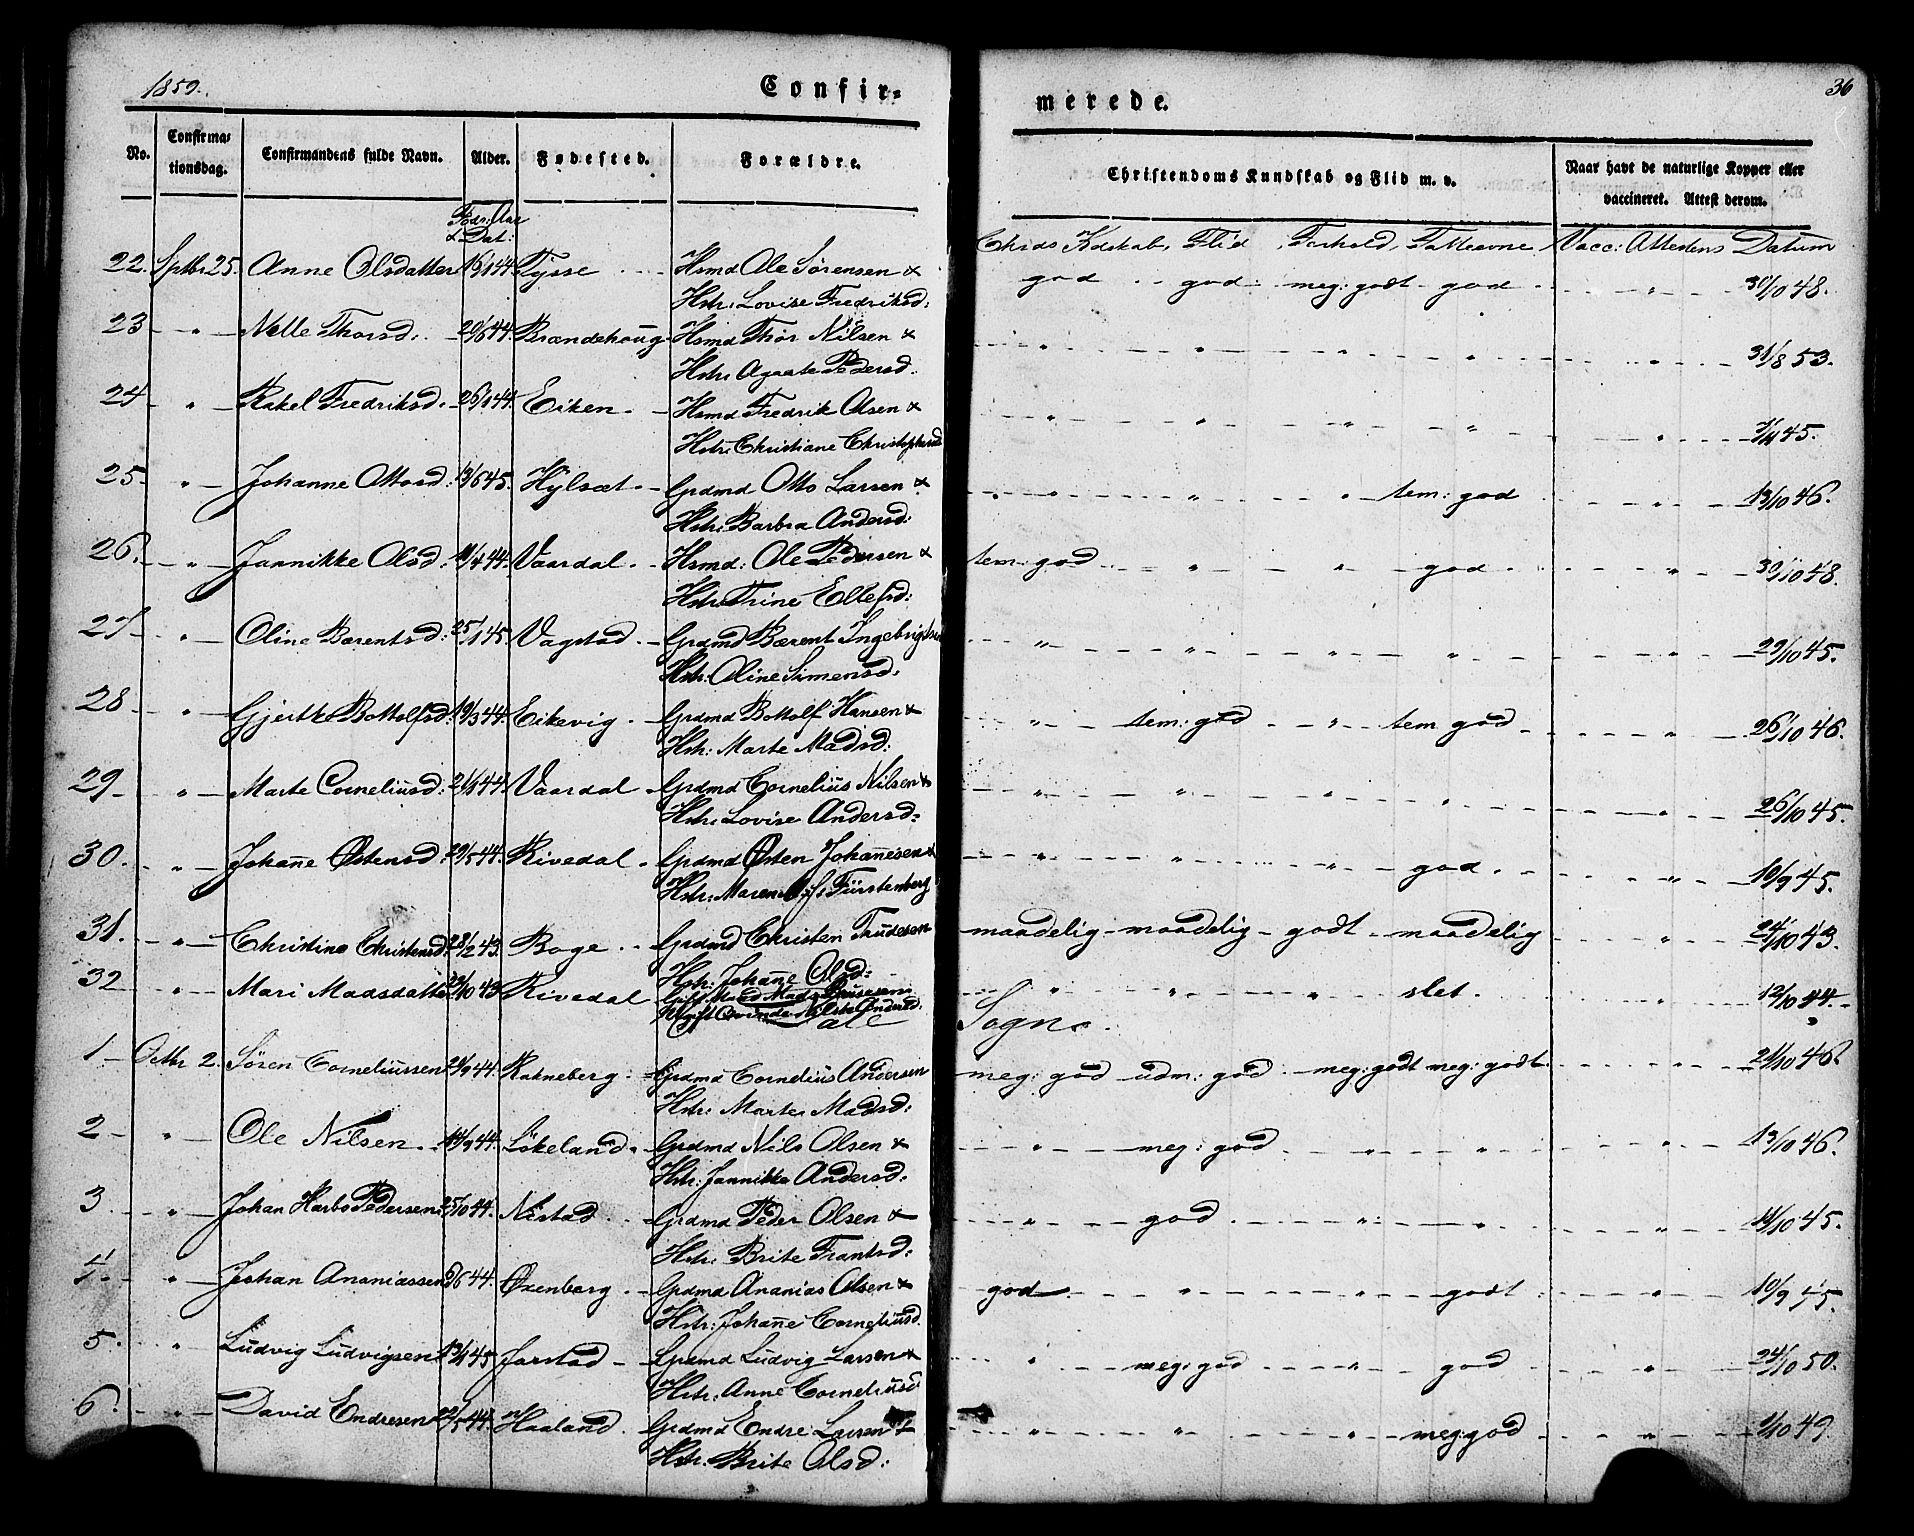 1859.
Confir-
merede.
36
No.
Confirma-
tionsdag.
Confirmandens fulde Navn.
Alder.
Fødested.
Forældre.
Christendoms Kundskab og Flid m. v.
Naar havt de naturlige Kopper eller
vaccineret. Attest derom.
Føds: Aar
& Dat:
Chrds Kdskab, Flid, Forhold, Fatteevne, Vacc: Attestens Datum
22. Sptbr 25. Anne Olsdatter 16/1 44. Tysse - - - Hsmd Ole Sørensen &
Hstr: Lovise Fredriksd:
god - - god - meg: godt - god - - " - - 30/10 48.
23 - " - Nille Thorsd: - 20/6 44. Brændehoug Hsmd Thor Nilsen &
Hstr: Agaate Pedersd:
- " - " - " - " - " - 31/8 53.
24 - " - Rakel Fredriksd. - 26/1 44. Eiken. - Hsmd Fredrik Olsen &
Hstr: Christiane Christophersd
- " - " - " - " - " - 45.
25 - " - Johanne Ottosd: 13/6 45. Hylsæt - Grdmd Otto Larsen &
Hstr: Barbra Andersd:
- " - " - " - tem: god - " - 13/10 46.
26. - " - Jannikke Olsd: 11/4 44. Vaardal. - Hsmd: Ole Pedersen &
Hstr: Trine Ellefsd:
tem: god - " - " - god - " - 30/10 48.
27 - " - Oline Bærentsd: 25/1 45. Vagstad. - Grdmd Bærent Ingebrigtsen
Hstr: Oline Simensd:
- " - " - " - " - " - 29/10 45.
28 - " - Gjertke Bottolfsd: 19/3 44. Eikevig. - Grdmd Bottolf Hansen &
Hstr: Marte Madsd:
- " - tem: god - " - tem god - " - 26/10 46.
29 - " - Marte Corneliusd: 44. Vaardal - Grdmd Cornelius Nilsen &
Hstr: Lovise Andersd:
- " - " - " - " - " - 26/10 45.
30. - " - Johanne Østensd: 29/5 44. Rivedal. - Grdmd Østen Johannesen &
Hstr: Maren Fürstenberg
- " - " - " - god. - " - 10/9 45.
31. - " - Christine Christensd: 28/2 43. Boge. - Grdmd Christen Trudesen
Hstr: Johanne Olsd:
maadelig - maadelig - godt - maadelig - " - 24/10 43.
32 - " - Mari Madsdatter 29/10 43 Rivedal Gift Mand Mads
Ugift Qvinde Andersd.
- " - " - " - slet. - " - 12/10 44.
Dale Sogn.
1 - Octbr 2. Søren Corneliussen 21/9 44. Rakneberg. - Grdmd Cornelius Andersen
Hstr: Marte Madsd:
meg: god udm: god. - meg: godt meg: godt. - 21/10 46.
2 - " - Ole Nilsen. - 14/9 44. Løkeland. Grdmd Nils Olsen &
Hstr: Jannikke Andersd:
- " - meg: god - " - " - " - 13/10 46.
3. - " - Johan Harbo Pedersen 25/10 44. Nistad. - Grdmd Peder Olsen &
Hstr: Brite Frantsd:
- " - god. - " - " - " - 14/10 45.
4. - " - Johan Ananiassen 9/6 44. Øxenberg. - Grdmd Ananias Olsen &
Hstr: Johanne Corneliusd.
god - " - " - godt - " - 10/9 45.
5. - " Ludvig Ludvigsen 13/1 45 Jarstad - Grdmd Ludvig Larsen &
Hstr: Anne Corneliusd
- " - meg: god - " - god - " - 24/10 50.
6. - " - David Endresen 22/5 44. Haaland. Grdmd Endre Larsen &
Hstr: Brite Olsd:
- " - " - " - meg: god - " - 1/10 49.